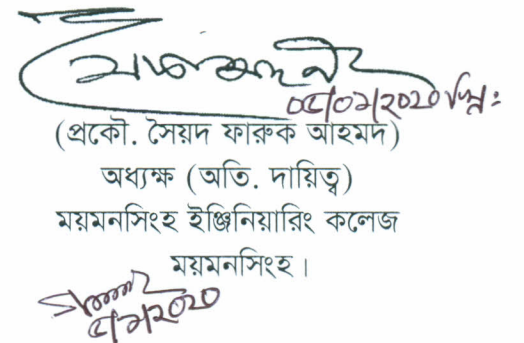 ০৫/০২/২০২০ খ্রি:
(প্রকৌ. সৈয়দ ফারুক আহমদ)
অধ্যক্ষ (অতি. দায়িত্ব)
ময়মনসিংহ ইঞ্জিনিয়ারিং কলেজ
ময়মনসিংহ।
৫/২/২০২০